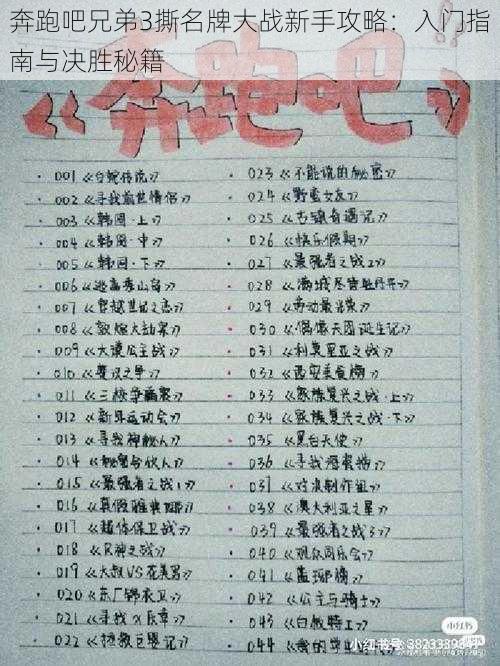 奔跑吧兄弟3撕名牌大战新手攻略：入门指
南与决胜秘籍
《奔跑吧》
001《白蛇传说》
002《寻找前世情侣》
003《韩国·上》
004《韩国·中》
005《韩国·下》
006《逃离秀山岛》
007《穿越世纪之恋》
008《敦煌大劫案》
009《大漠公主战》
010《楚汉之争》
011《三校争霸赛》
012《新年运动会》
013《寻找神秘人》
014《秘密合伙人》
015《最强者之战1》
016《真假
017《超体保卫战》
018《R神之战》
019《大叔VS花美男》
020《东厂锦衣卫》
021《寻找X勋章》
022《拯救巨婴记》
023《不能说的秘密》
024《野蛮女友》
025《古镇奇遇记》
026《快乐假期》
027《最强者之战2》
028《满城尽带牡丹开》
029《劳动最光荣》
030《偶像天团诞生记》
031《利莫里亚之战》
032《西安美食
033《家族复兴之战·上》
034《家族复兴之战·下》
035《黑白天使》
036《寻找海
037
038《澳大利亚之星》
039《最强者之战3》
040《观众同乐会》
041
042《公主与骑士》
043《白发特工》
044《我的
小红书
小红书号